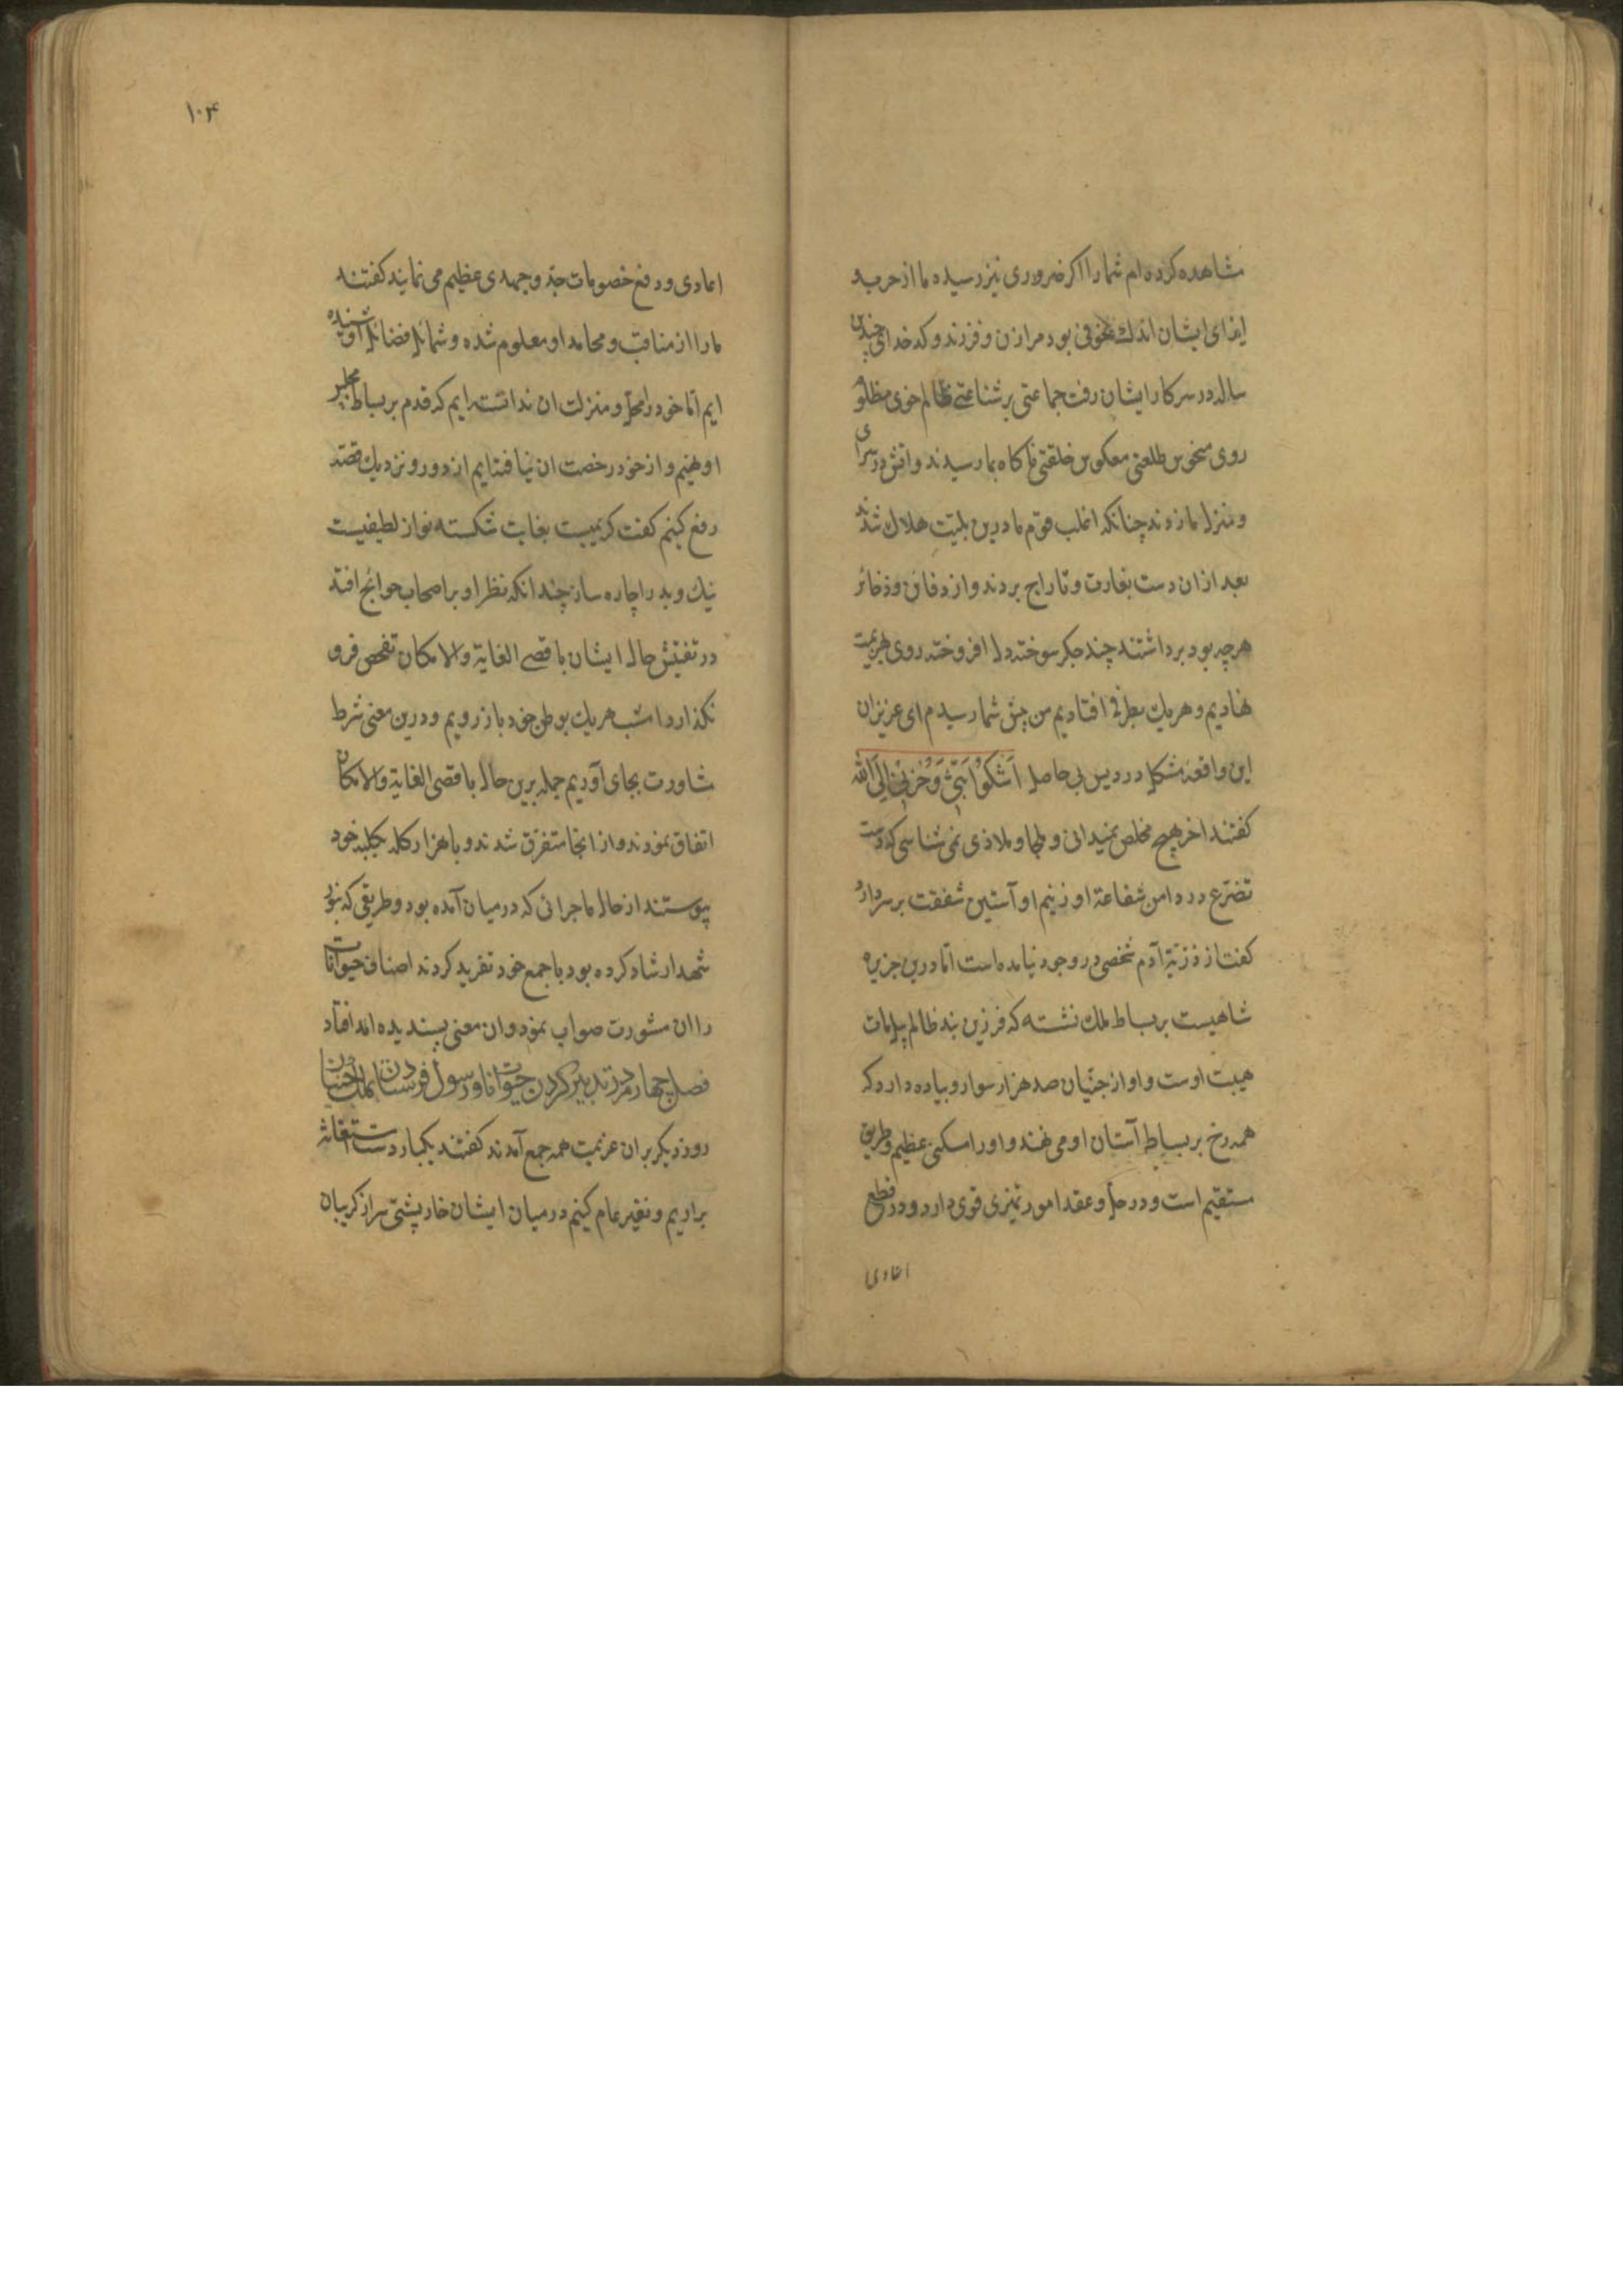 مشاهده کرده ام شما را اکر ضروری نیز رسیده ما از حرب و
ایزای ایشان اندك بود مرا زن و فرزند و کدخدای چندین
ساله در سرکار ایشان رفت جماعتی بر شناعتی ظالم خوی مظلوم
روی منحوس طلعتی معکوس خلقتی ناکاه بما رسیدند و اتش در سرای
و منزل ما زدند چنانکه اغلب قوم ما درین بلیّت هلاك شدند
بعد از ان دست بغارت و تاراج بردند و از دفائن و ذخائر
هرچه بود برداشتند چند جکر سوخته دل افروخته روی بهزیمت
نهادیم و هریك بطرفی افتادیم من پیش شما رسیدم ای عزیزان
این واقعه مشکل درد بی حاصل اَشْکُوا بَثّی وَحُزْنی اِلَی الله
کفتند اخر هیچ مخلص نمیدانی و ملجا و ملاذی نمی شناسی که دست
تضرّع در دامن شفاعة او زنیم او آستین شفقت بر سر دارد
کفت از ذرّیّة آدم شخصی در وجود نیامده است امّا درین جزیره
شاهیست بر بساط ملك نشسته که فرزین بند ظالم پیلمات
هیبت اوست و او از جنّیان صد هزار سوار و پیاده دارد که
همه رخ بر بساط آستان او می نهند و او را مسکنی عظیم و طریق
مستقیم است و در حلّ و عقد امور تمیزی قوی دارد و در قطع
اعادی
۱۰۴
اعادی و دفع خصومات جدّ و جهدی عظیم می نمایند کفتند
ما را از مناقب و محامد او معلوم شده و شمائل فضائل او شنیده
ایم امّا خود را محلّ و منزلت ان ندانسته ایم که قدم بر بساط مجلس
او نهیم و از خود رخصت ان نیافته ایم از دور و نزدیك قصّه
رفع کنیم کفت کریمیست بغایت شکسته نواز لطیفیست
نیك و بد را چاره ساز چندانکه نظر او بر اصحاب حوائج افتد
در تفتیش حال ایشان باقصی الغایة والامکان تفحص فرو
نکذارد امشب هریك بوطن خود باز رویم و درین معنی شرط
مشاورت بجای آوریم جمله برین حال باقصی الغایة والامکان
اتفاق نمودند و از انجا متفرّق شدند و با هزار کله بکلبه خود
پیوستند از حال ماجرائی که در میان آمده بود و طریقی که زنبور
شهد ارشاد کرده بود با جمع خود تفرید کردند اصناف حیوانات
را ان مشورت صواب نمود و ان معنی پسندیده افتاد
فصل چهارم در تدبیر کردن حیوانات و رسول فرستادن بملك جنّیان
روز دیکر بران عزیمت همه جمع آمدند کفتند یکبار دست استغاثه
براریم و نفیر عام کنیم در میان ایشان خارپشتی سر از کریبان